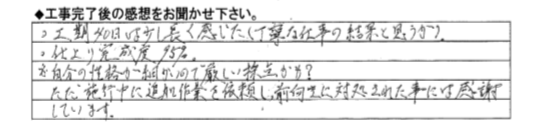 ◆工事完了後の感想をお聞かせ下さい。
○工期40日は少し長く感じた(丁寧な仕事の結果と思うが)。
○仕上り完成度 95点。
※自分の性格が細かいので厳しい採点かも?
ただ施行中に追加作業を依頼し、前向きに対処された事には感謝
しています。